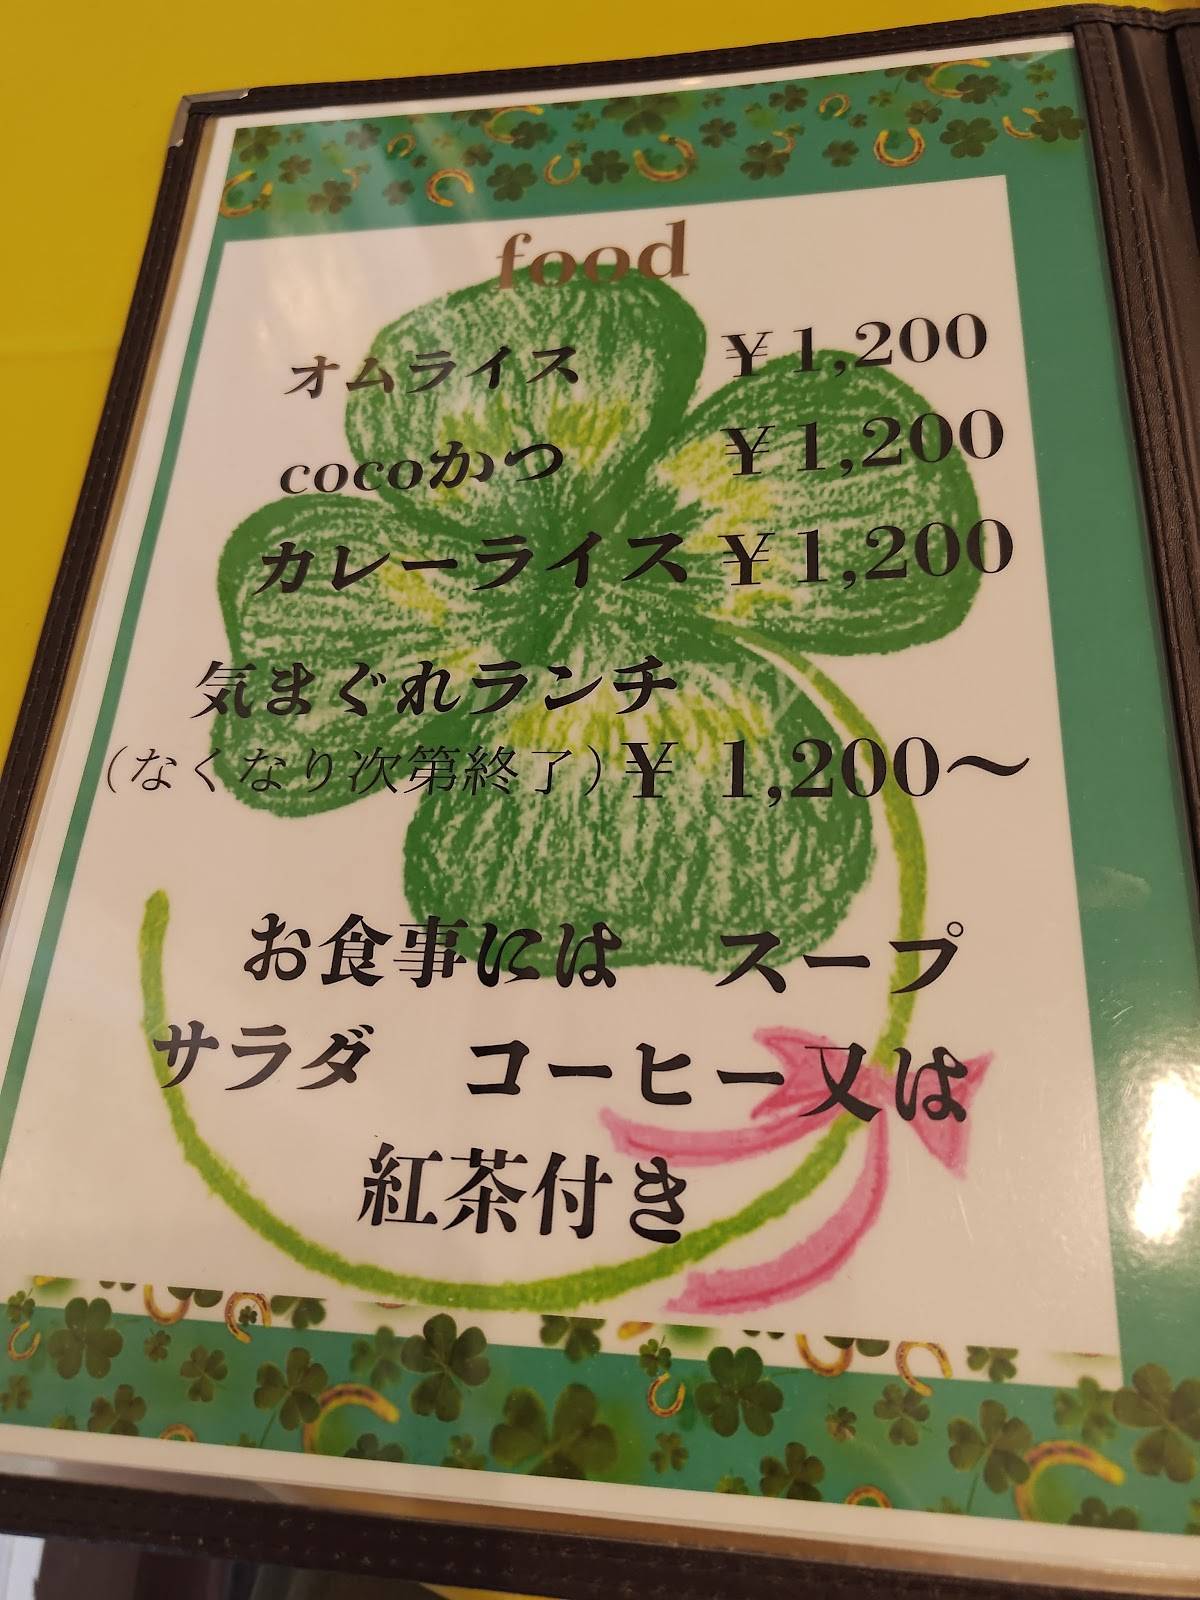 food
オムライス ¥1,200
cocoかつ ¥1,200
カレーライス ¥1,200
気まぐれランチ
(なくなり次第終了) ¥ 1,200～
お食事には スープ
サラダ コーヒー又は
紅茶付き